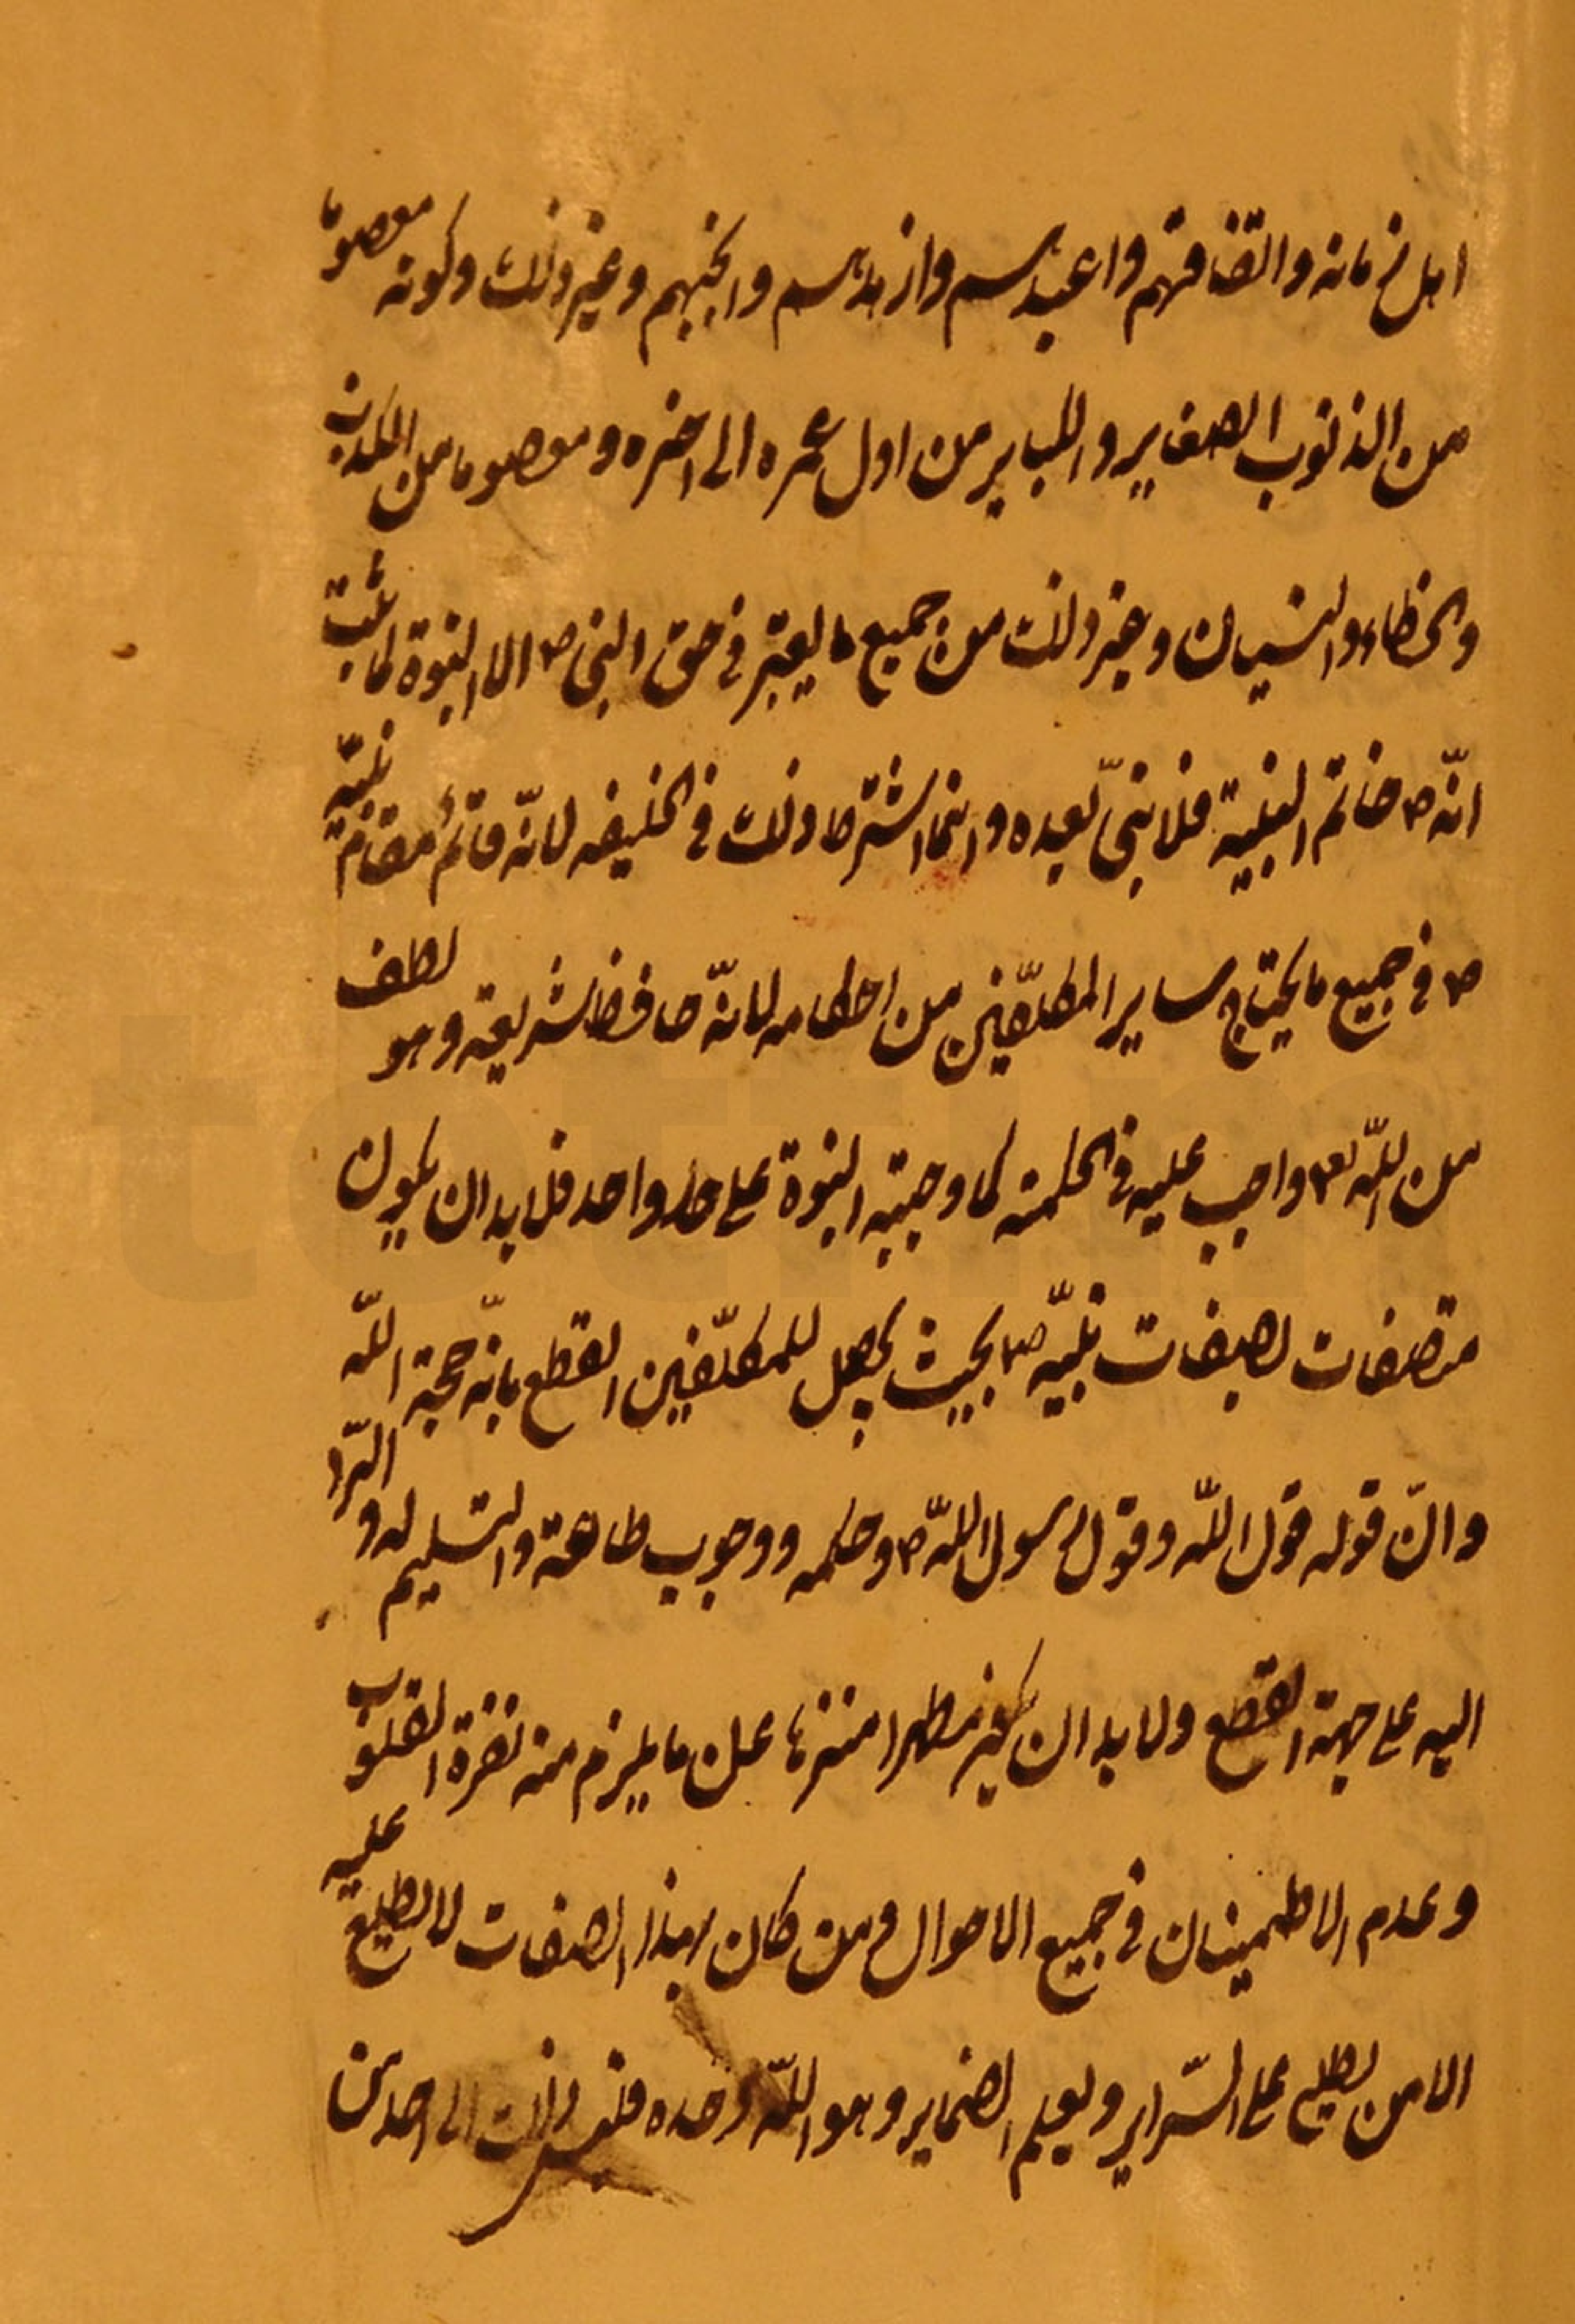 اهل زمانه واتقاهم واعبدهم وازهدهم وانجبهم وغير ذلك وكونه معصوما
من الذنوب الصغاير والكباير من اول عمره الى اخره ومعصوما من الكذب
والخطاء والنسيان وغير ذلك من جميع ما يعتبر في حق النبي ص الا النبوة لما ثبت
انّه ص خاتم النبيين فلا نبيّ بعده وانما اشترط ذلك في الخليفه لانّه قائم مقام نبيّه
ص في جميع ما يحتاج ساير المكلّفين من احكامه لانّه حافظ شريعته وهو لطف
من اللّه تعالى واجب عليه في الحكمة كما وجبته النبوة على حد واحد فلا بد ان يكون
متصفات بصفات نبيّه ص بحيث يحصل للمكلّفين القطع بانّه حجة اللّه
وانّ قوله قول اللّه وقول رسول اللّه ص وحكمه ووجوب طاعته والتسليم له والرّد
اليه على جهة القطع ولا بد ان يكون مطهرا منزها عن ما يلزم منه نفرة القلوب
وعدم الاطمينان في جميع الاحوال ومن كان بهذا الصفات لا يطلع عليه
الا من يطلع على السّراير ويعلم الضماير وهو اللّه وحده فليس ذلك الى احد من